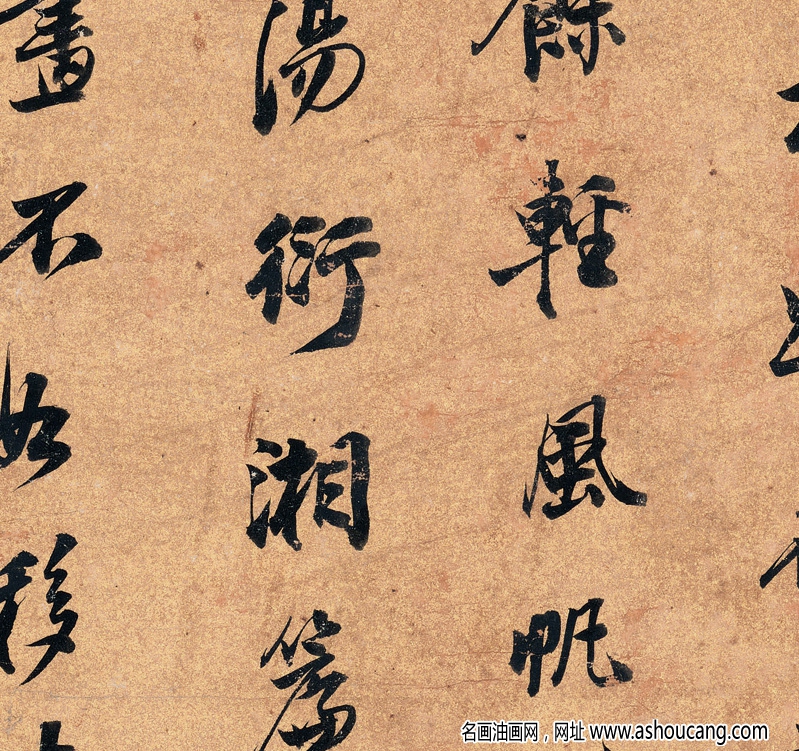 餘輕風帆
湯衍湘篇
畫不如移
名画油画网，网址 www.ashoucang.com